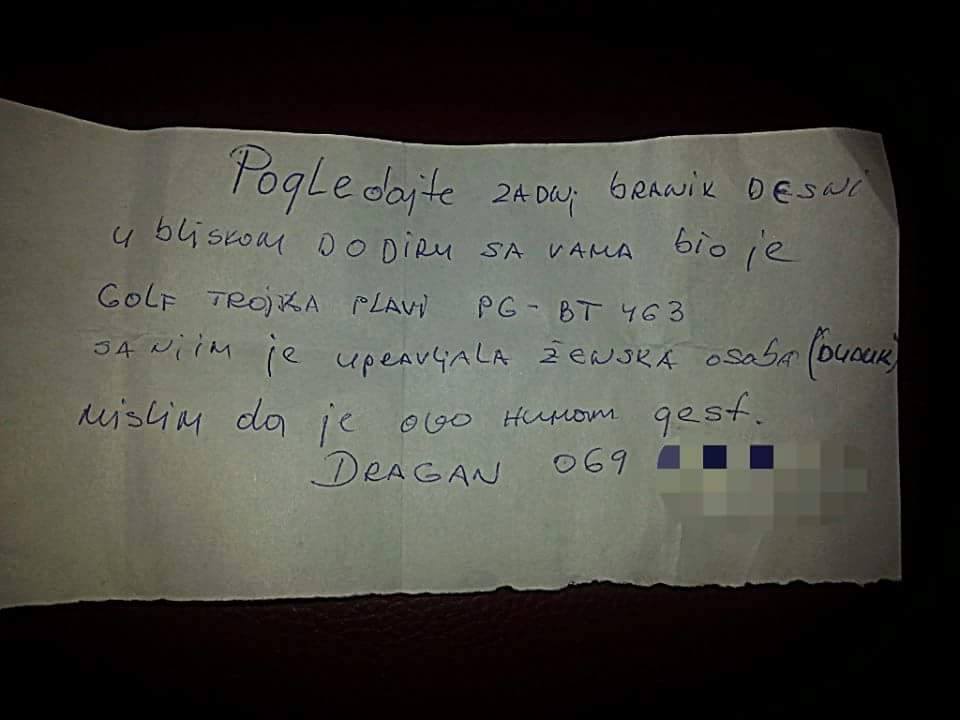 Pogledajte ZADNJ BRANIK DESNI
u bliskom DODIRU SA VAMA bio je
GOLF TROJKA PLAVI PG-BT 463
SA NJIM je upravljala ŽENSKA osoba (DUDUK)
Mislim da je ovo HUMAN gest.
DRAGAN 069